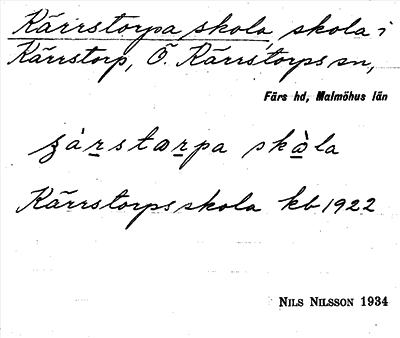 Kärrstorpa skola, skola i
Kärrstorp, Ö. Kärrstorps sn,
Färs hd, Malmöhus län
skòla
Kärrstorps skola kb 1922
NILS NILSSON 1934